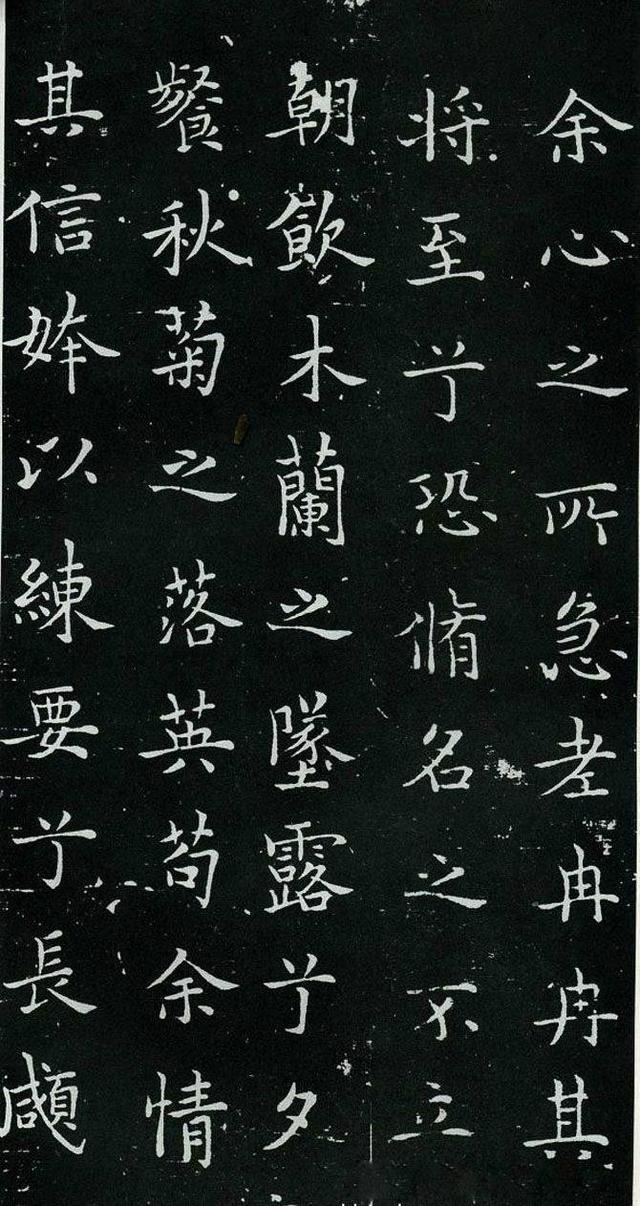 余心之所急老冉冉其
將至兮恐脩名之不立
朝飲木蘭之墜露兮夕
餐秋菊之落英苟余情
其信姱以練要兮長顑